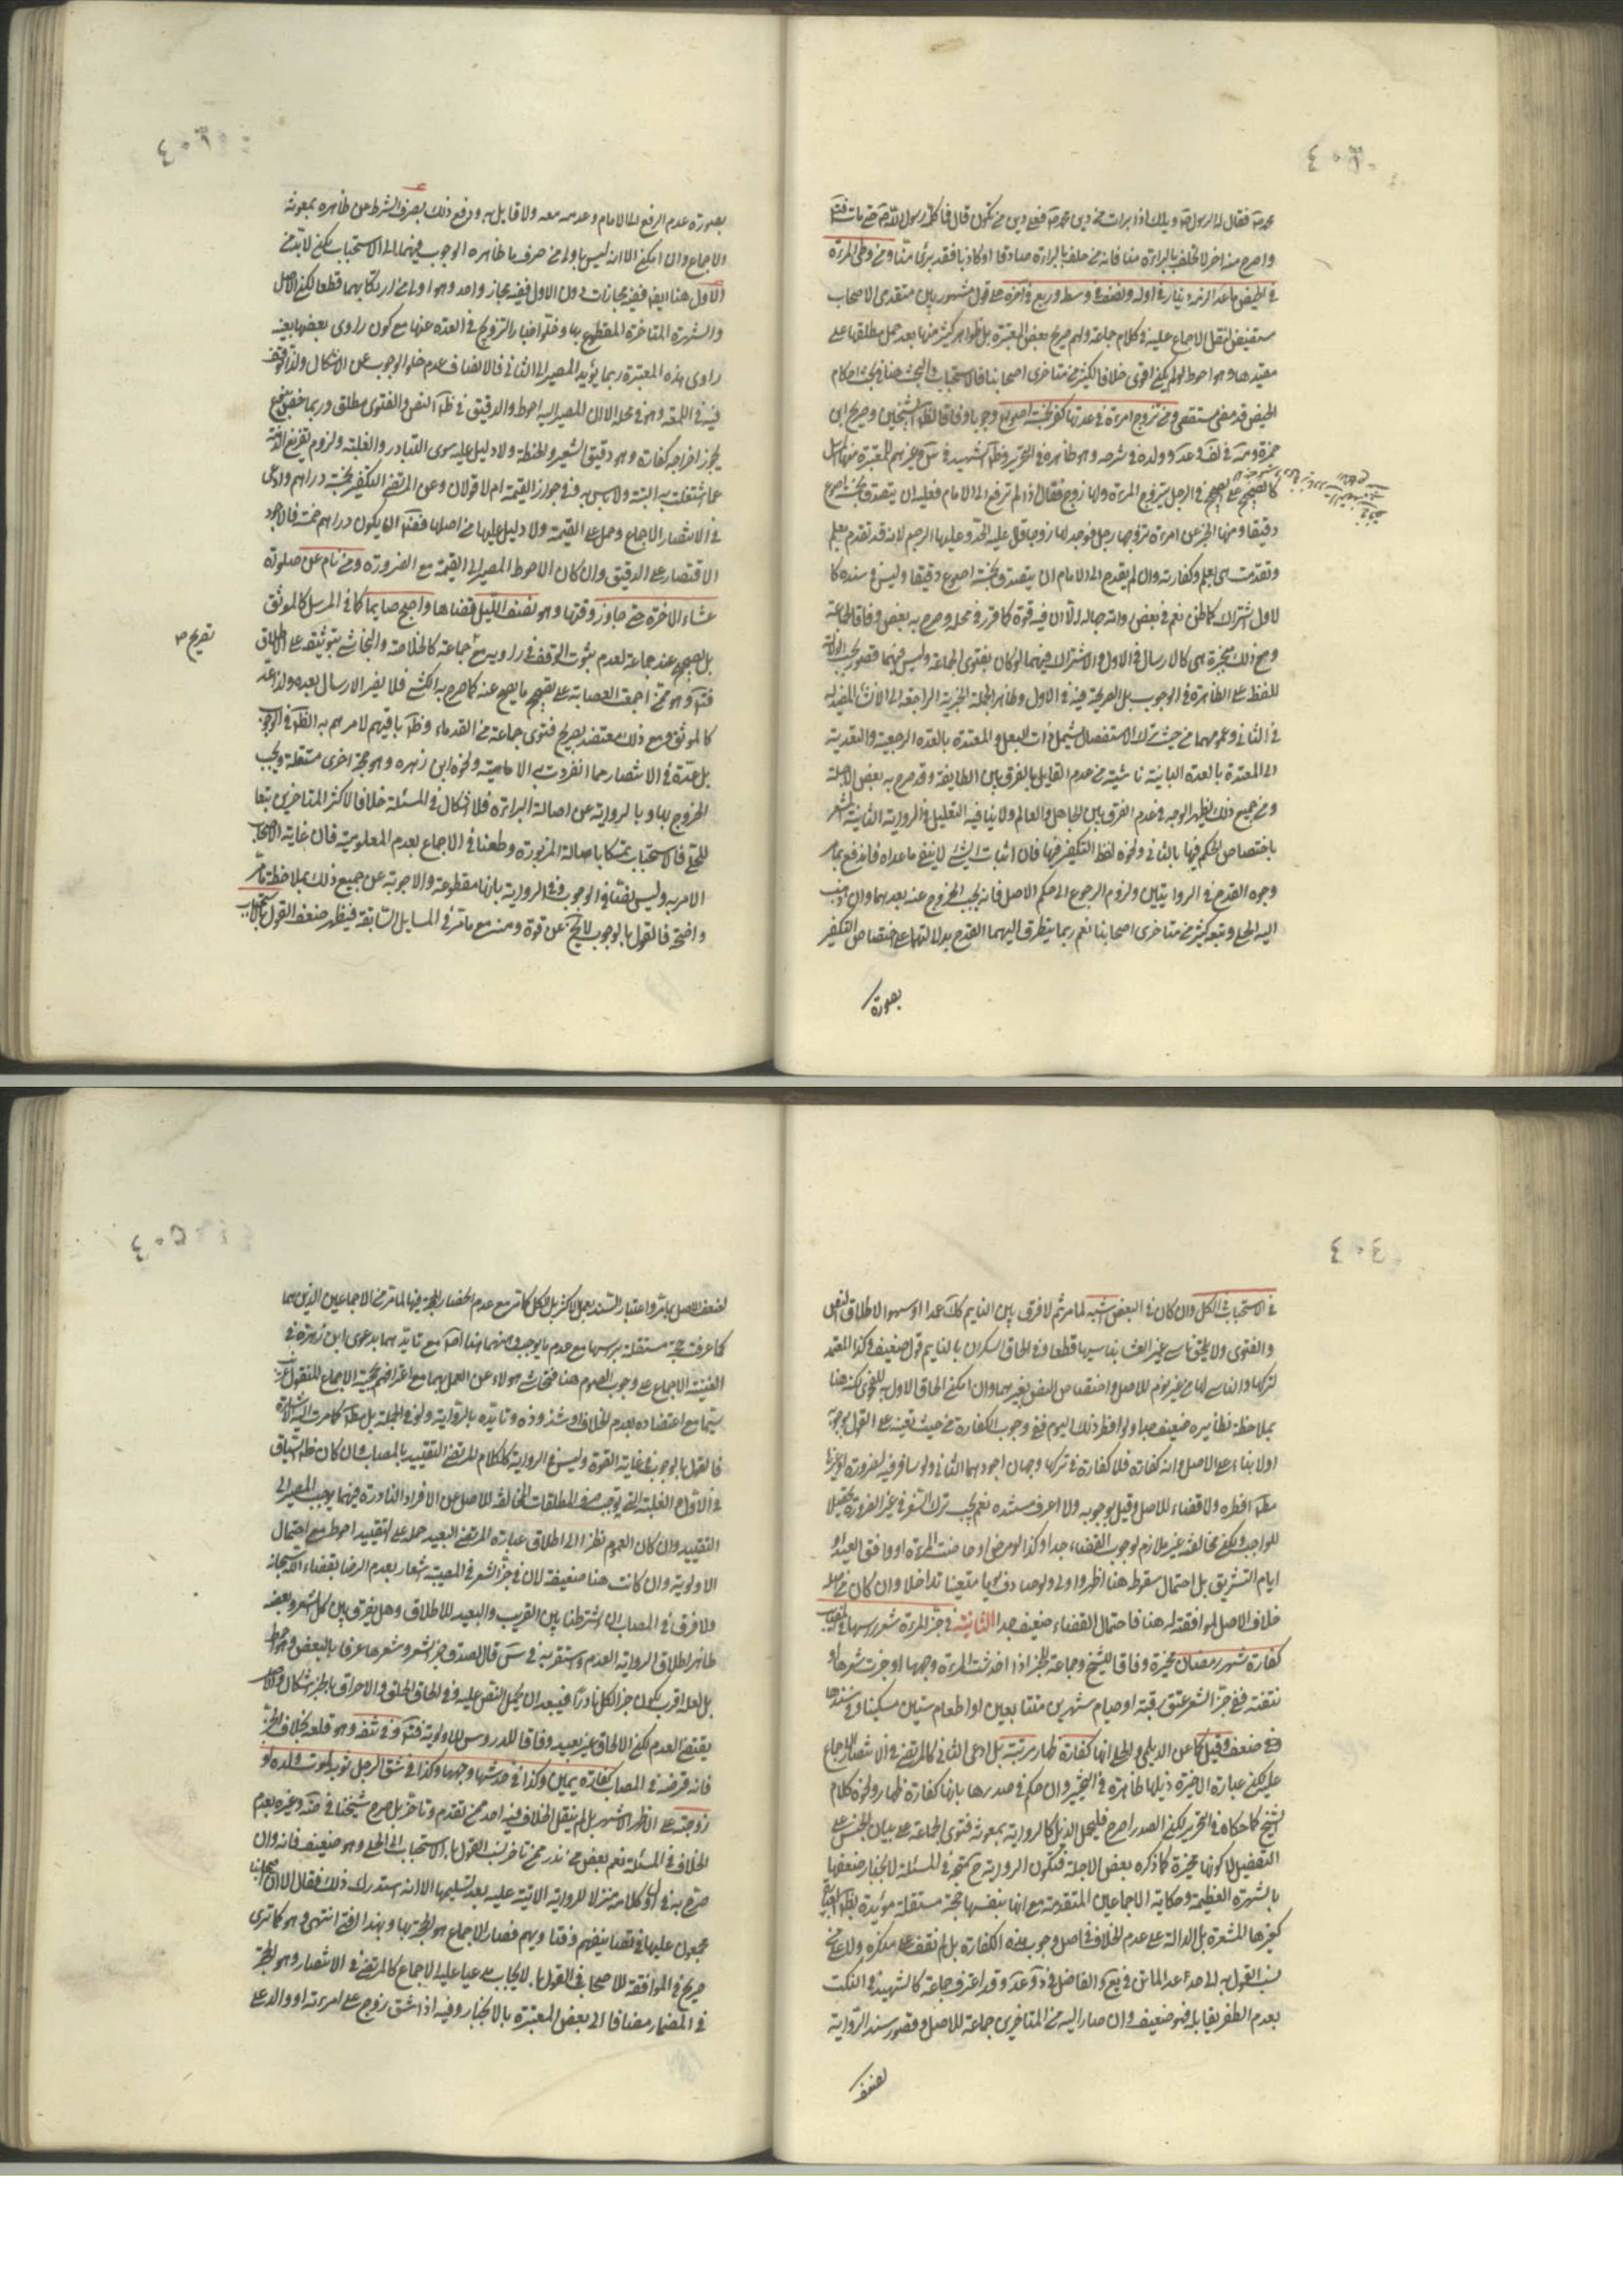 محمد ص فقال له الرسول ص ويلك اذا برات من دين محمد ص فعلى دين من تكون قال فما كلمه رسول الله ص حتى مات
واصرح منه اخر لا تحلف بالبراءة منا فانه من حلف بالبراءة منا صادقا او كاذبا فقد برئ منا ومن وطى المرءة
في الحيض عامدا لزمه دينار في اوله ونصف في وسطه وربع في اخره على قول مشهور بين متقدمى الاصحاب
مستفيض لنقل الاجماع عليه في كلام جماعة ولهم صريح بعض المعتبرة بل ظواهر كثير منها بعد حمل مطلقها على
مقيدها وهو احوط لو لم يكن اقوى خلافا لكثير من متاخرى اصحابنا فالاستحباب والبحث هنا في احكام
الحيض قد مضى مستقصى ومن تزوج امرءة في عدتها كفر بخمسة اصوع وجوبا وفاقا لظاهر الشيخين وصريح ابن
حمزة وولده في شرحه وهو ظاهره في التحرير وظاهر الشهيد في وغيرهم للمعتبرة منها المرسل
كالصحيح على الصحيح في الرجل يتزوج المرءة ولها زوج فقال اذا لم ترفع الى الامام فعليه ان يتصدق بخمسة اصوع
دقيقا ومنها الخبر عن امرءة تزوجها رجل فوجد لها زوجا قال عليه الحد وعليها الرجم لانه قد تقدم بعلم
وتقدمت هى بعلم وكفارته وان لم يقدم الى الامام ان يتصدق بخمسة اصوع دقيقا وليس في سنده كا
لاول اشتراك كما ظن نعم في بعض رجاله الا ان فيه قوة كما قرر في محله وصرح به بعض وفاقا لجماعة
ومع ذلك منجبرة هى كالارسال في الاول والاشتراك فيهما لو كان بفتوى الجماعة وليس فيهما قصور
للفظ على الظاهرة في الوجوب بل الصريحة فيه في الاول وظاهر الجملة الخبرية الراجعة الى الانشاء المفيد له
في الثانى وعمومهما من حيث ترك الاستفصال يشمل ذات البعل والمعتدة بالعدة الرجعية والتعدية
الى المعتدة بالعدة البائنة ناشئة من عدم القايل بالفرق بين الطايفة وقد صرح به بعض الاجلة
ومن جميع ذلك يظهر الوجه في عدم الفرق بين الجاهل والعالم ولا ينافيه التعليل في الرواية الثانية المشعر
باختصاص الحكم فيها بالثانى ونحوه لفظ التكفير فيها فان اثبات الشئ لا ينفى ما عداه فاندفع بما مر
وجوه القدح في الروايتين ولزوم الرجوع الى حكم الاصل فانه يجب الخروج عنه بعدهما وان ذهب
اليه الحلى وتبعه كثير من متاخرى اصحابنا نعم ربما يتطرق اليهما القدح بدلالتهما على اختصاص التكفير
بصورة
بصورة عدم الرفع الى الامام وعدمه معه ولا قايل به ودفع ذلك بصرف الشرط عن ظاهره بمعونة
الاجماع وان امكن الا انه ليس باولى من صرف ما ظاهره الوجوب فيهما الى الاستحباب لكن لا بد من
الاول هنا ايضا ففيه مجازات دون الاول ففيه مجاز واحد وهو اولى من ارتكابهما قطعا لكن الاصل
والشهرة المتاخرة المقطوع بها وخلو اخبار التزويج في العدة عنها مع كون راوى بعضها بعينه
راوى هذه المعتبرة ربما يؤيد المصير الى الثانى فالانصاف عدم خلو الوجوب عن الاشكال ولذا توقف
فيه في اللمعة وهو في محله الا ان المصير اليه احوط والدقيق في ظاهر النص والفتوى مطلق وربما خص
يجوز اخراجه كفارة وهو دقيق الشعير والحنطة ولا دليل عليه سوى التبادر والغلبة ولزوم تفريغ الذمة
عما اشتغلت به البتة ولا باس به وفي جواز القيمة ام لا قولان وعن المرتضى التكفير بخمسة دراهم وادعى
في الانتصار الاجماع وحمل على القيمة ولا دليل عليها من اصلها فضلا ان يكون دراهم خمسة فالاجود
الاقتصار على الدقيق وان كان الاحوط المصير الى القيمة مع الضرورة ومن نام عن صلوة
عشاء الاخرة حتى جاوز وقتها وهو نصف الليل قضاها واصبح صايما كما في المرسل كالموثق
بل الصحيح عند جماعة لعدم ثبوت الوقف في راويه مع جماعة كالخلاصة والنجاشى بتوثيقه على الاطلاق
تصريح ص
وهو ممن اجمعت العصابة على تصحيح ما يصح عنه كما صرح به الكشى فلا يضر الارسال بعده ولذا عد
كالموثق ومع ذلك معتضد بصريح فتوى جماعة من القدماء وظاهر باقيهم لامرهم به الظاهر في الوجوب
بل عده في الانتصار مما انفردت به الامامية ونحوه ابن زهرة وهو حجة اخرى مستقلة ويجب
الخروج بها وبالرواية عن اصالة البراءة فلا اشكال في المسئلة خلافا لاكثر المتاخرين تبعا
للحلى فالاستحباب تمسكا باصالة المزبورة وطعنا في الاجماع بعدم المعلومية فان غاية الاصحاب
الامر به وليس نصا في الوجوب وفي الرواية بانها مقطوعة والاجوبة عن جميع ذلك بملاحظة ما مر
واضحة فالقول بالوجوب لا يخ عن قوة ومنه مع ما مر في المسايل السابقة فيظهر ضعف القول
في الاستحباب في الكل وان كان في البعض اشبه لما مر ثم لا فرق بين النايم كذلك عمدا او سهوا لاطلاق النص
والفتوى ولا يلحق ناسى غير العشاء بناسيها قطعا وفي الحاق السكران بالنايم قول ضعيف وكذا المتعمد
لتركها والناسى لها من غير نوم للاصل واختصاص النص بغيرهما وان امكن الحاق الاول به للفحوى لكنه هنا
بملاحظة نظايره ضعيف جدا ولو افطر ذلك اليوم ففى وجوب الكفارة من حيث تعينه على القول بوجوبه
اولا بناء على الاصل وانه كفارة فلا كفارة في تركها وجهان اجودهما الثانى ولو سافر فيه لضرورة او غيرها
افطره ولا قضاء للاصل وقيل بوجوبه ولا اعرف مستنده نعم يجب ترك السفر في غير الضرورة تحصيلا
للواجب ولكن مخالفته غير ملازم لوجوب القضاء جدا وكذا لو مرض او حاضت المرءة او وافق العيد او
ايام التشريق بل احتمال سقوطه هنا اظهر واولى ولو صادف صوما متعينا تداخلا وان كان على
خلاف الاصل لموافقته له هنا فاحتمال القضاء ضعيف جدا الثانية في جز المرءة شعر راسها في المصاب
كفارة شهر رمضان مخيرة وفاقا للشيخ وجماعة للخبر اذا خدشت المرءة وجهها او جزت شعرها او
نتفته ففى جز الشعر عتق رقبة او صيام شهرين متتابعين او اطعام ستين مسكينا وفي سندها
ضعف وقيل كما عن الديلمى والحلى انها كفارة ظهار مرتبة بل ادعى الثانى كالمرتضى في الانتصار الاجماع
عليه لكن عبارة الاخيرة ذيلها ظاهرة في التخيير وان حكم في صدرها بانها كفارة ظهار ونحوه كلام
الشيخ كما حكاه في التحرير لكن الصدر اصرح فليحمل الذيل كالرواية بمعونة فتوى الجماعة على بيان الجنس على
التفصيل لا كونها مخيرة كما ذكره بعض الاجلة فتكون الرواية ح حجة في المسئلة لانجبار ضعفها
بالشهرة العظيمة وحكاية الاجماعين المتقدمة مع انها بنفسها حجة مستقلة مؤيدة بظاهر العبارة
كغيرها المشعرة بل الدالة على عدم الخلاف في اصل وجوب هذه الكفارة بل لم نقف على منكره ولا على من
نسب القول به الى احد عدا الماتن في والفاضل في وقد اعترف جماعة كالشهيد في النكت
بعدم الظفر بقايله فهو ضعيف وان صار اليه من المتاخرين جماعة للاصل وقصور سند الرواية
لضعف
لضعف الاصل بما مر واعتبار السند بعمل الاكثر بل الكل كما مر مع عدم انحصار الحجة فيها لما مر من الاجماعين الذين هما
كما عرفت حجة مستقلة براسها مع عدم ما يوجب وهنهما هنا مع تايدهما بدعوى ابن زهرة في
الغنية الاجماع على وجوب الصوم هنا فتحاشى هؤلاء عن العمل بهما مع اعترافهم بحجية الاجماع المنقول
سيما مع اعتضاده بعدم الخلاف او شذوذه وتايده بالرواية ولو في الجملة بل مطلقا كما مرت اليه الاشارة
فالقول بالوجوب في غاية القوة وليس في الرواية كالكلام للمرتضى التقييد بالمصاب وان كان ظاهر السياق
في الاول الغلبة التى توجب صرف المطلقات المخالفة للاصل عن الافراد النادرة فيهما يوجب المصير الى
التقييد وان كان العموم نظرا الى اطلاق عبارة المرتضى البعيد حمله على التقييد احوط مع احتمال
الاولوية وان كانت هنا ضعيفة لان في جز الشعر في المصيبة اشعار بعدم الرضا بقضاء الله سبحانه
ولا فرق في المصاب ان اشترطنا بين القريب والبعيد للاطلاق وهل يفرق بين كل الشعر وبعضه
ظاهر اطلاق الرواية العدم واستقربه في س قال لصدق جز الشعر وشعرها عرفا بالبعض وهو احوط
بل لعله اقرب لكون جز الكل نادرا فيبعد ان يحمل النص عليه وفي الحاق الحلق والاحراق بالجز اشكال والاصل
يقتضى العدم لكن الالحاق غير بعيد وفاقا للدروس للاولوية وفي نتفه وهو قلعه بخلاف الجز
فانه قرضه في المصاب كفارة يمين وكذا في خدشها وجهها وكذا في شق الرجل ثوبه لموت ولده او
زوجته على الاظهر الاشهر بل لم ينقل الخلاف فيه احد ممن تقدم وتاخر بل صرح شيخنا في وغيره بعدم
الخلاف في المسئلة نعم بعض من ندر ممن تاخر نسب القول بالاستحباب الى الحلى وهو ضعيف فانه وان
صرح به في اول كلامه منزلا للرواية الاتية عليه بعد تسليمها الا انه استدرك ذلك فقال الا ان اصحابنا
مجمعون عليها في تصانيفهم وفتاويهم فصار الاجماع هو الحجة بها وبهذا افتى انتهى وهو كما ترى
صريح في الموافقة للاصحاب في القول بالايجاب مدعيا عليه الاجماع كالمرتضى في الانتصار وهو الحجة
في المضمار مضافا الى بعض المعتبرة بالانجبار وفيه اذا شق زوج على امرءته او والد على